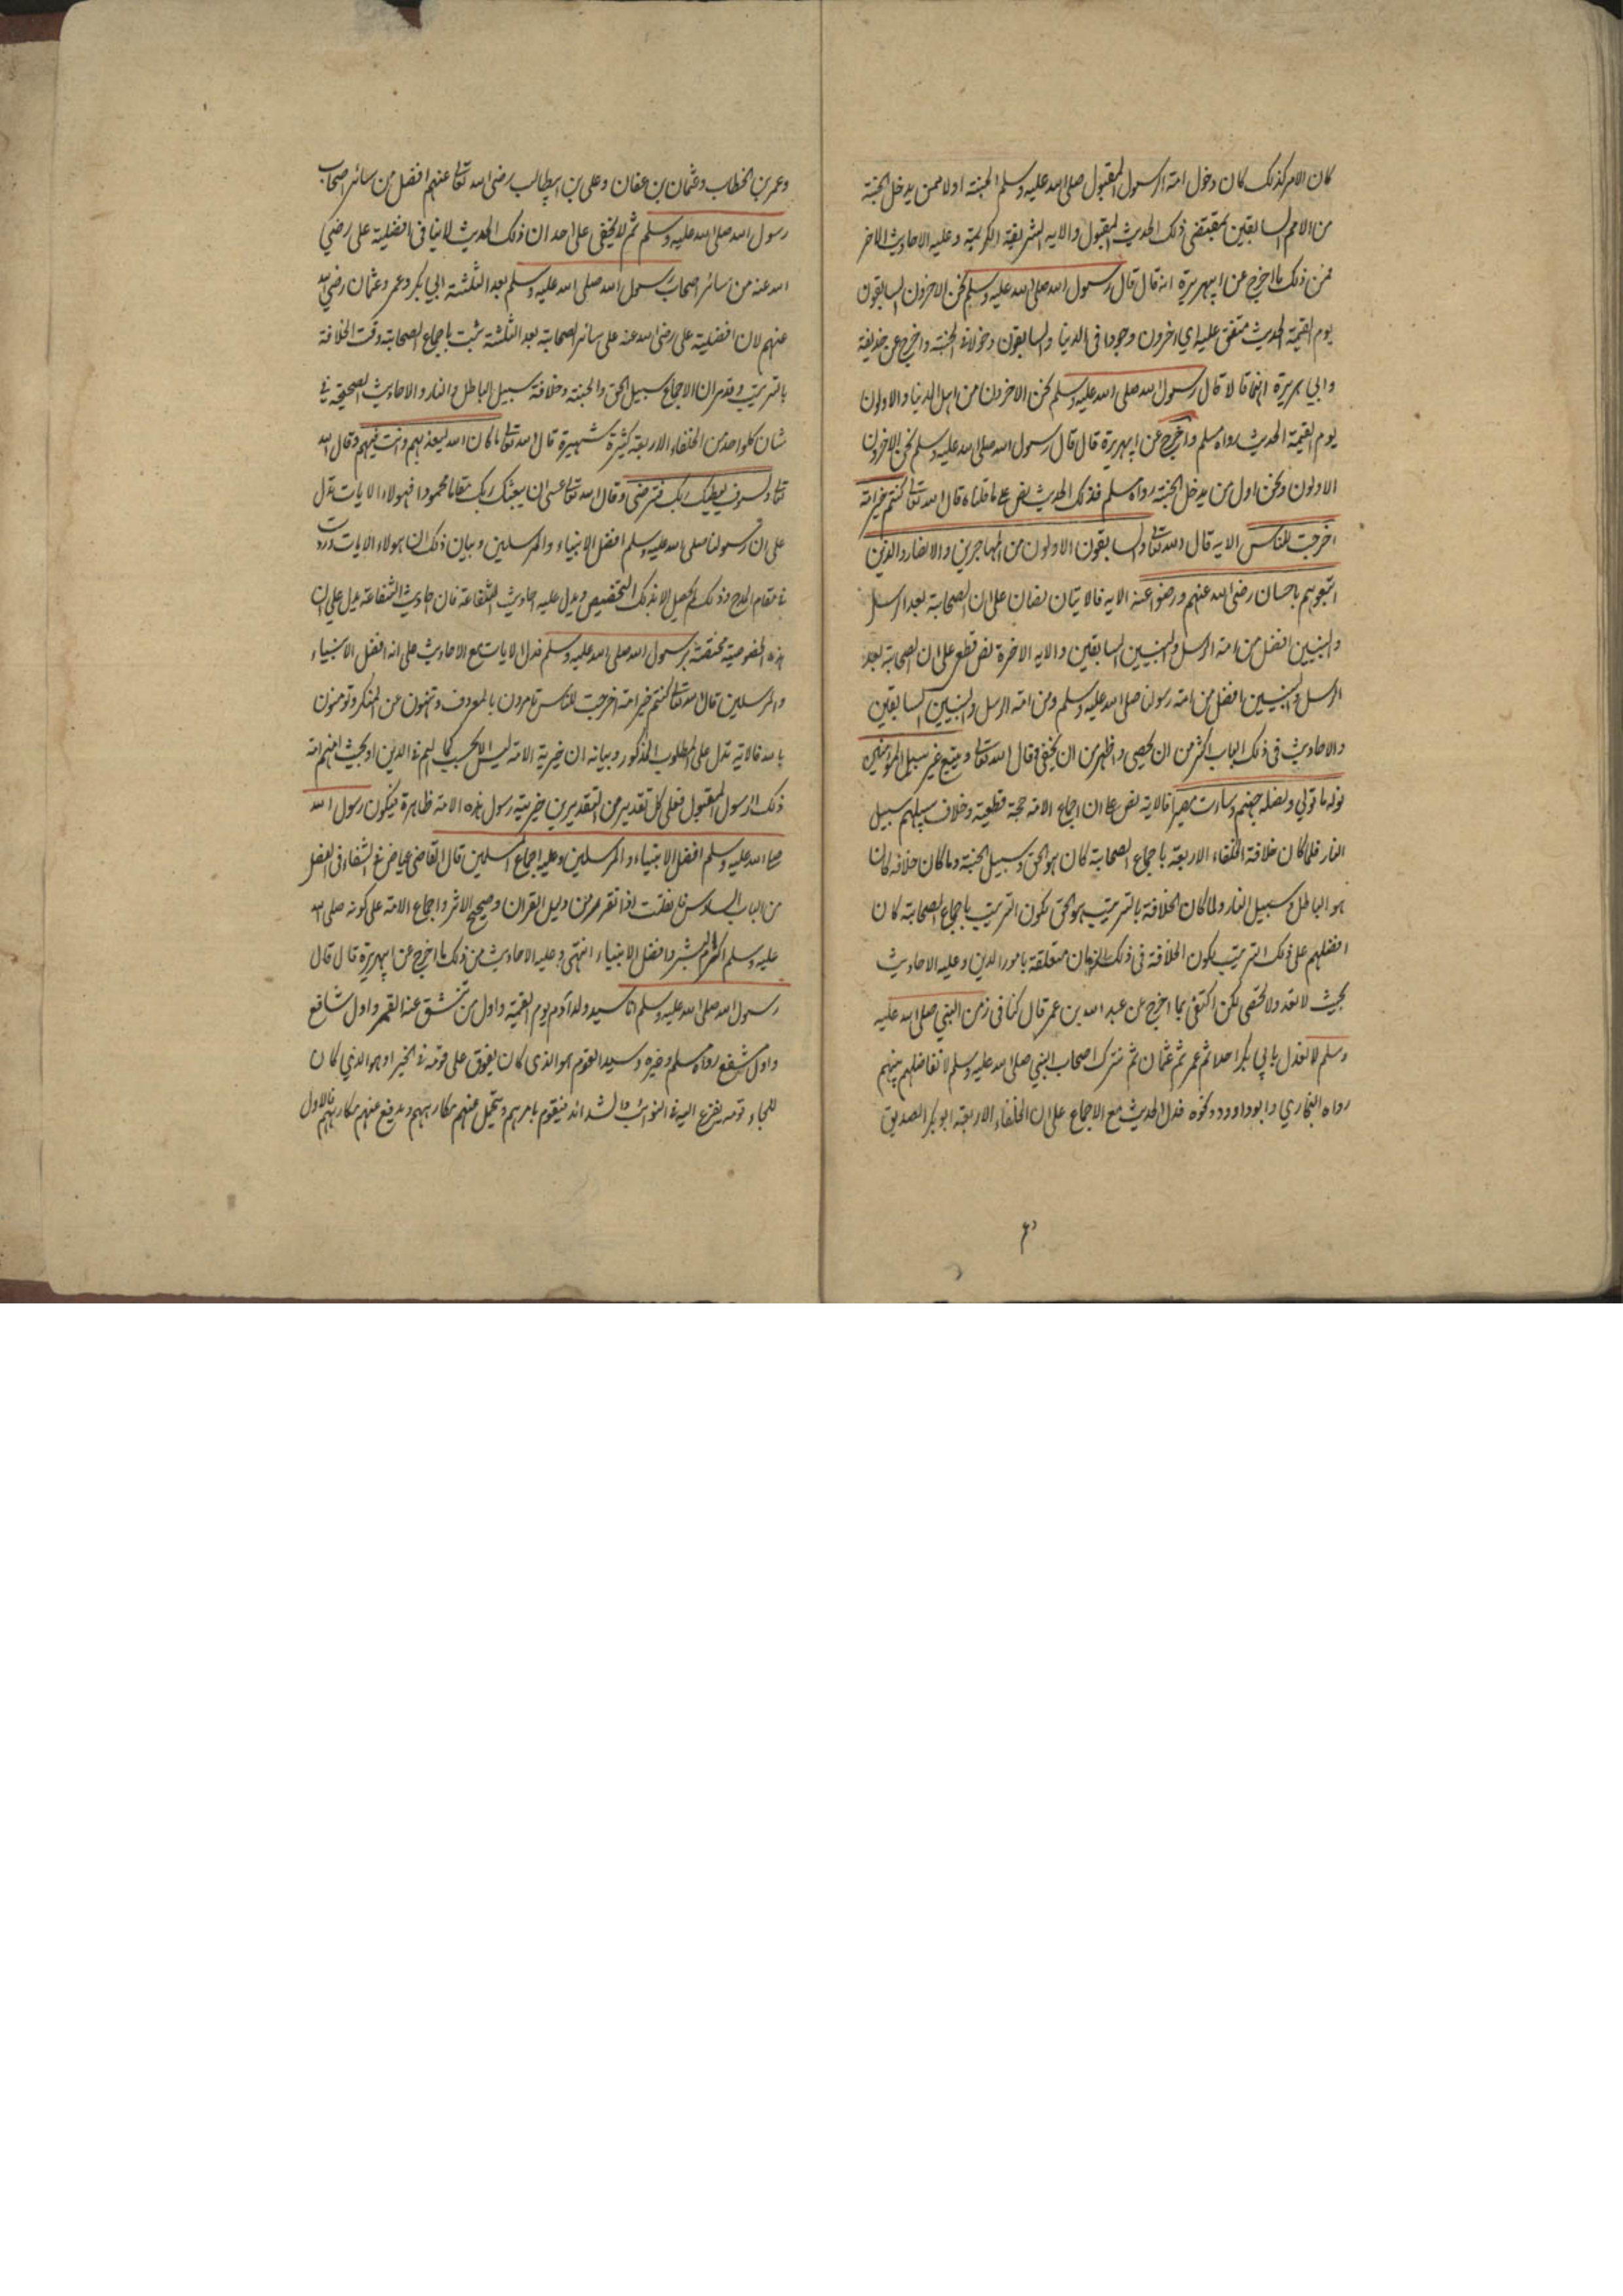 كان الامر كذلك كان دخول امته الرسول المقبول صلى الله عليه وسلم الجنته اولا ممن يدخل الجنة
من الامم السابقين بمقتضى ذلك الحديث المقبول والايه الشريفة الكريمة وعليه الاحاديث الاخر
فمن ذلك ما اخرج عن ابيهريرة انه قال قال رسول الله صلى الله عليه وسلم نحن الاخرون السابقون
يوم القيمة الحديث متفق عليه اي اخرون وجودا في الدنيا والسابقون دخولا في الجنته واخرج عن حذيفة
وابي هريرة انهما قالا قال رسول الله صلى الله عليه وسلم نحن الاخرون من اهل الدنيا والاولون
يوم القيمة الحديث رواه مسلم واخرج عن ابيهريرة قال قال رسول الله صلى الله عليه وسلم نحن الاخرون
الاولون ونحن اول من يدخل الجنته رواه مسلم فذلك الحديث نص على ما قلناه قال الله تعالى كنتم خير امة
اخرجت للناس الايه قال الله تعالى والسابقون الاولون من المهاجرين والانصار والذين
اتبعوهم باحسان رضى الله عنهم ورضوا عنه الايه فالايتان نصان على ان الصحابة بعد الرسل
والنبيين افضل من امته الرسل والنبيين السابقين والايه الاخرة نص قطع على ان الصحابة بعد
الرسل والنبيين افضل من امته رسولنا صلى الله عليه وسلم ومن امته الرسل والنبيين السابقين
والاحاديث في ذلك الباب اكثر من ان يحصى واظهر من ان يخفى وقال الله تعالى ويتبع غير سبيل المومنين
نوله ما تولى ونصله جهنم وساءت مصيرا فالايه نص على ان اجماع الامة حجة قطعية وخلاف سبيلهم سبيل
النار فلما كان خلافة الخلفاء الاربعة باجماع الصحابة كان هو الحق وسبيل الجنته وما كان خلافه كان
هو الباطل وسبيل النار ولما كان الخلافة بالترتيب هو الحق لكون الترتيب باجماع الصحابة كان
افضلهم على ذلك الترتيب لكون الخلافة في ذلك الزمان متعلقة بامور الدين وعليه الاحاديث
بحيث لا تعد ولا تحصى لكن اكتفى بما اخرج عن عبد الله بن عمر قال كنا في زمن النبي صلى الله عليه
وسلم لا نعدل بابي بكر احدا ثم عمر ثم عثمان ثم نترك اصحاب النبي صلى الله عليه وسلم لا نفاضل بينهم
رواه البخاري وابو داوود ونحوه فدل الحديث مع الاجماع على ان الخلفاء الاربعة ابو بكر الصديق
وعمر بن الخطاب وعثمان بن عفان وعلى بن ابيطالب رضى الله تعالى عنهم افضل من سائر اصحاب
رسول الله صلى الله عليه وسلم ثم لا يخفى على احد ان ذلك الحديث لا ينافى افضلية على رضي
الله عنه من سائر اصحاب رسول الله صلى الله عليه وسلم بعد الثلثة ابي بكر وعمر وعثمان رضي الله
عنهم لان افضلية على رضى الله عنه على سائر الصحابة بعد الثلثة ثبت باجماع الصحابة وقت الخلافة
بالترتيب وقد مر ان الاجماع سبيل الحق والجنته وخلافه سبيل الباطل والنار والاحاديث الصحيحة في
شان كلواحد من الخلفاء الاربعة كثيرة شهيرة قال الله تعالى ما كان الله ليعذبهم وانت فيهم وقال الله
تعالى ولسوف يعطيك ربك فترضى وقال الله تعالى عسى ان يبعثك ربك مقاما محمودا فهولاء الايات تدل
على ان رسولنا صلى الله عليه وسلم افضل الانبياء والمرسلين وبيان ذلك ان هولاء الايات وردت
في مقام المدح وذلك لم يحصل الا بذلك التخصيص ويدل عليه احاديث الشفاعة فان احاديث الشفاعة يدل على ان
هذه الخصوصية مختصة برسول الله صلى الله عليه وسلم فدل الايات مع الاحاديث على انه افضل الانبياء
والمرسلين قال الله تعالى كنتم خير امة اخرجت للناس تامرون بالمعروف وتنهون عن المنكر وتومنون
بالله فالاية تدل على المطلوب المذكور وبيانه ان خيرية الامة ليس الا بحسب كمالهم في الدين او بحيث انهم امة
ذلك الرسول المقبول فعلى كل تقدير من التقديرين خيرية رسول هذه الامة ظاهرة فيكون رسول الله
صلى الله عليه وسلم افضل الانبياء والمرسلين وعليه اجماع المسلمين قال القاضى عياض في الشفاء في الفصل
من الباب السادس فان قلت اذا تقرر من دليل القران وصحيح الاثر واجماع الامة على كونه صلى الله
عليه وسلم اكرم البشر وافضل الانبياء انتهى وعليه الاحاديث من ذلك ما اخرج عن ابيهريرة قال قال
رسول الله صلى الله عليه وسلم انا سيد ولد آدم يوم القيمة واول من تنشق عنه القبر واول شافع
واول مشفع رواه مسلم وغيره وسيد القوم هو الذى كان يفوق على قومه في الخير او هو الذي كان
قومه يفزع اليه في النوائب والشدائد فيقوم بامرهم ويتحمل عنهم مكارههم ويدفع عنهم مكارههم فالاول